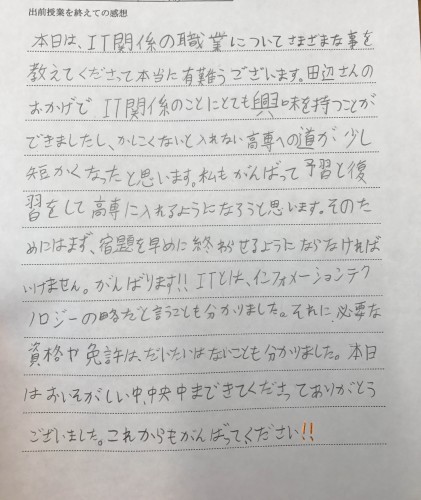 出前授業を終えての感想
本日は、IT関係の職業についてさまざまな事を
教えてくださって本当に有難うございます。田辺さんの
おかげで IT関係のことにとても興味を持つことが
できましたし、かしこくないと入れない高専への道が、少し
短かくなったと思います。私もがんばって予習と復
習をして高専に入れるようになろうと思います。そのた
めにはまず、宿題を早めに終わらせるようにならなければ
いけません。がんばります!! ITとは、インフォメーションテク
ノロジーの略だと言うことも分かりました。それに、必要な
資格や免許は、だいたいはないことも分かりました。本日
はおいそがしい中、中央中まできてくださってありがとう
ございました。これからもがんばってください!!